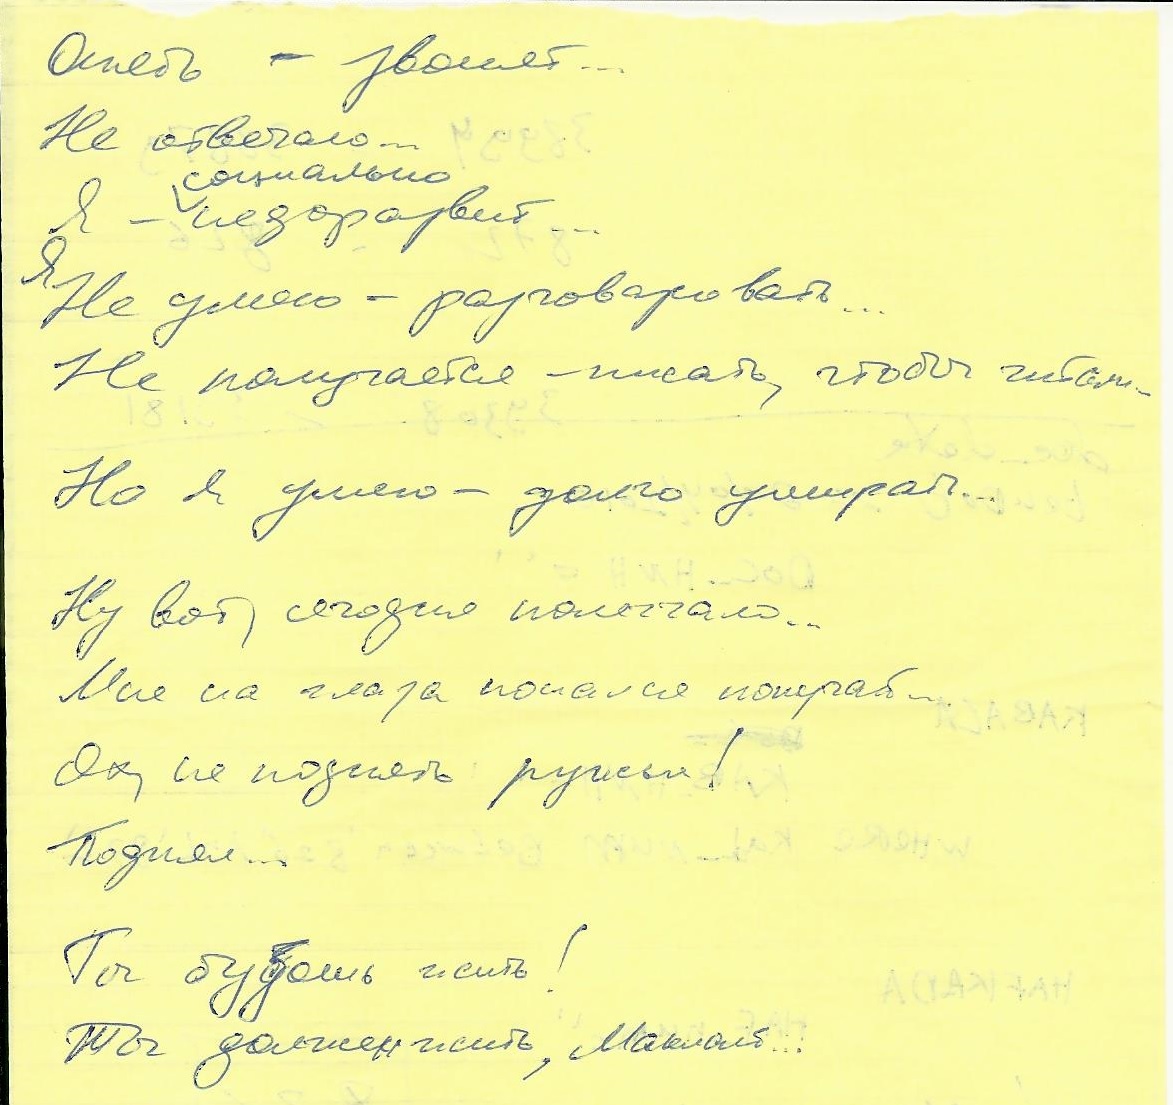 Опять - звонят...
Не отвечаю...
социально
Я - недоразвит...
Я Не умею - разговаривать...
Не получается - писать, чтобы читали...
Но я умею - долго умирать...
Ну вот, сегодня полегчало...
Мне на глаза попался попугай...
Ох, не поднять ружьём!
Поднял...
Ты будешь жить!
Ты должен жить, Маклай...